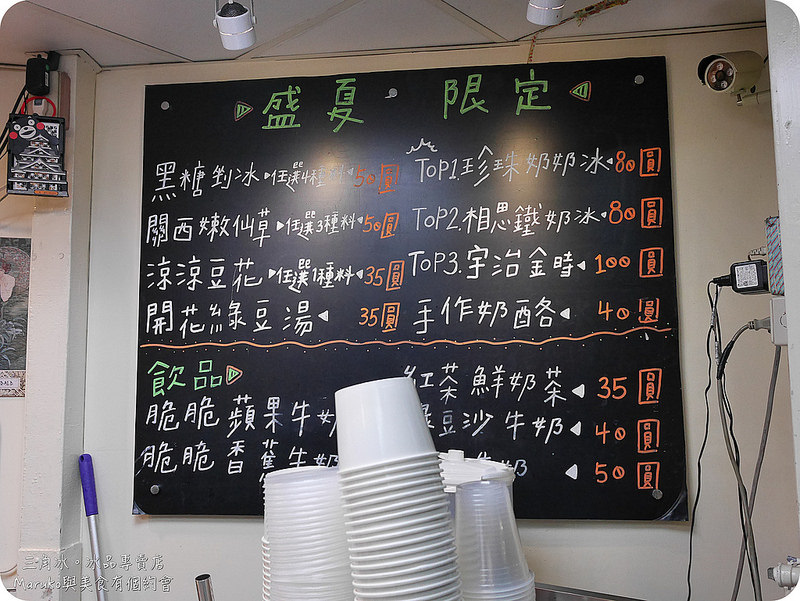 盛夏 限定
黑糖剉冰▸任選4種料◂50圓
關西嫩仙草▸任選3種料◂50圓
涼涼豆花▸任選1種料◂35圓
開花綠豆湯◂ 35圓
TOP1.珍珠奶奶冰◂80圓
TOP2.相思鐵奶冰◂80圓
TOP3.宇治金時◂100圓
手作奶酪◂ 40圓
飲品▷
脆脆蘋果牛奶
脆脆香蕉牛奶
紅茶鮮奶茶◂35圓
綠豆沙牛奶◂40圓
牛奶 ◂50圓
三角冰。冰品專賣店
Maruko與美食有個約會